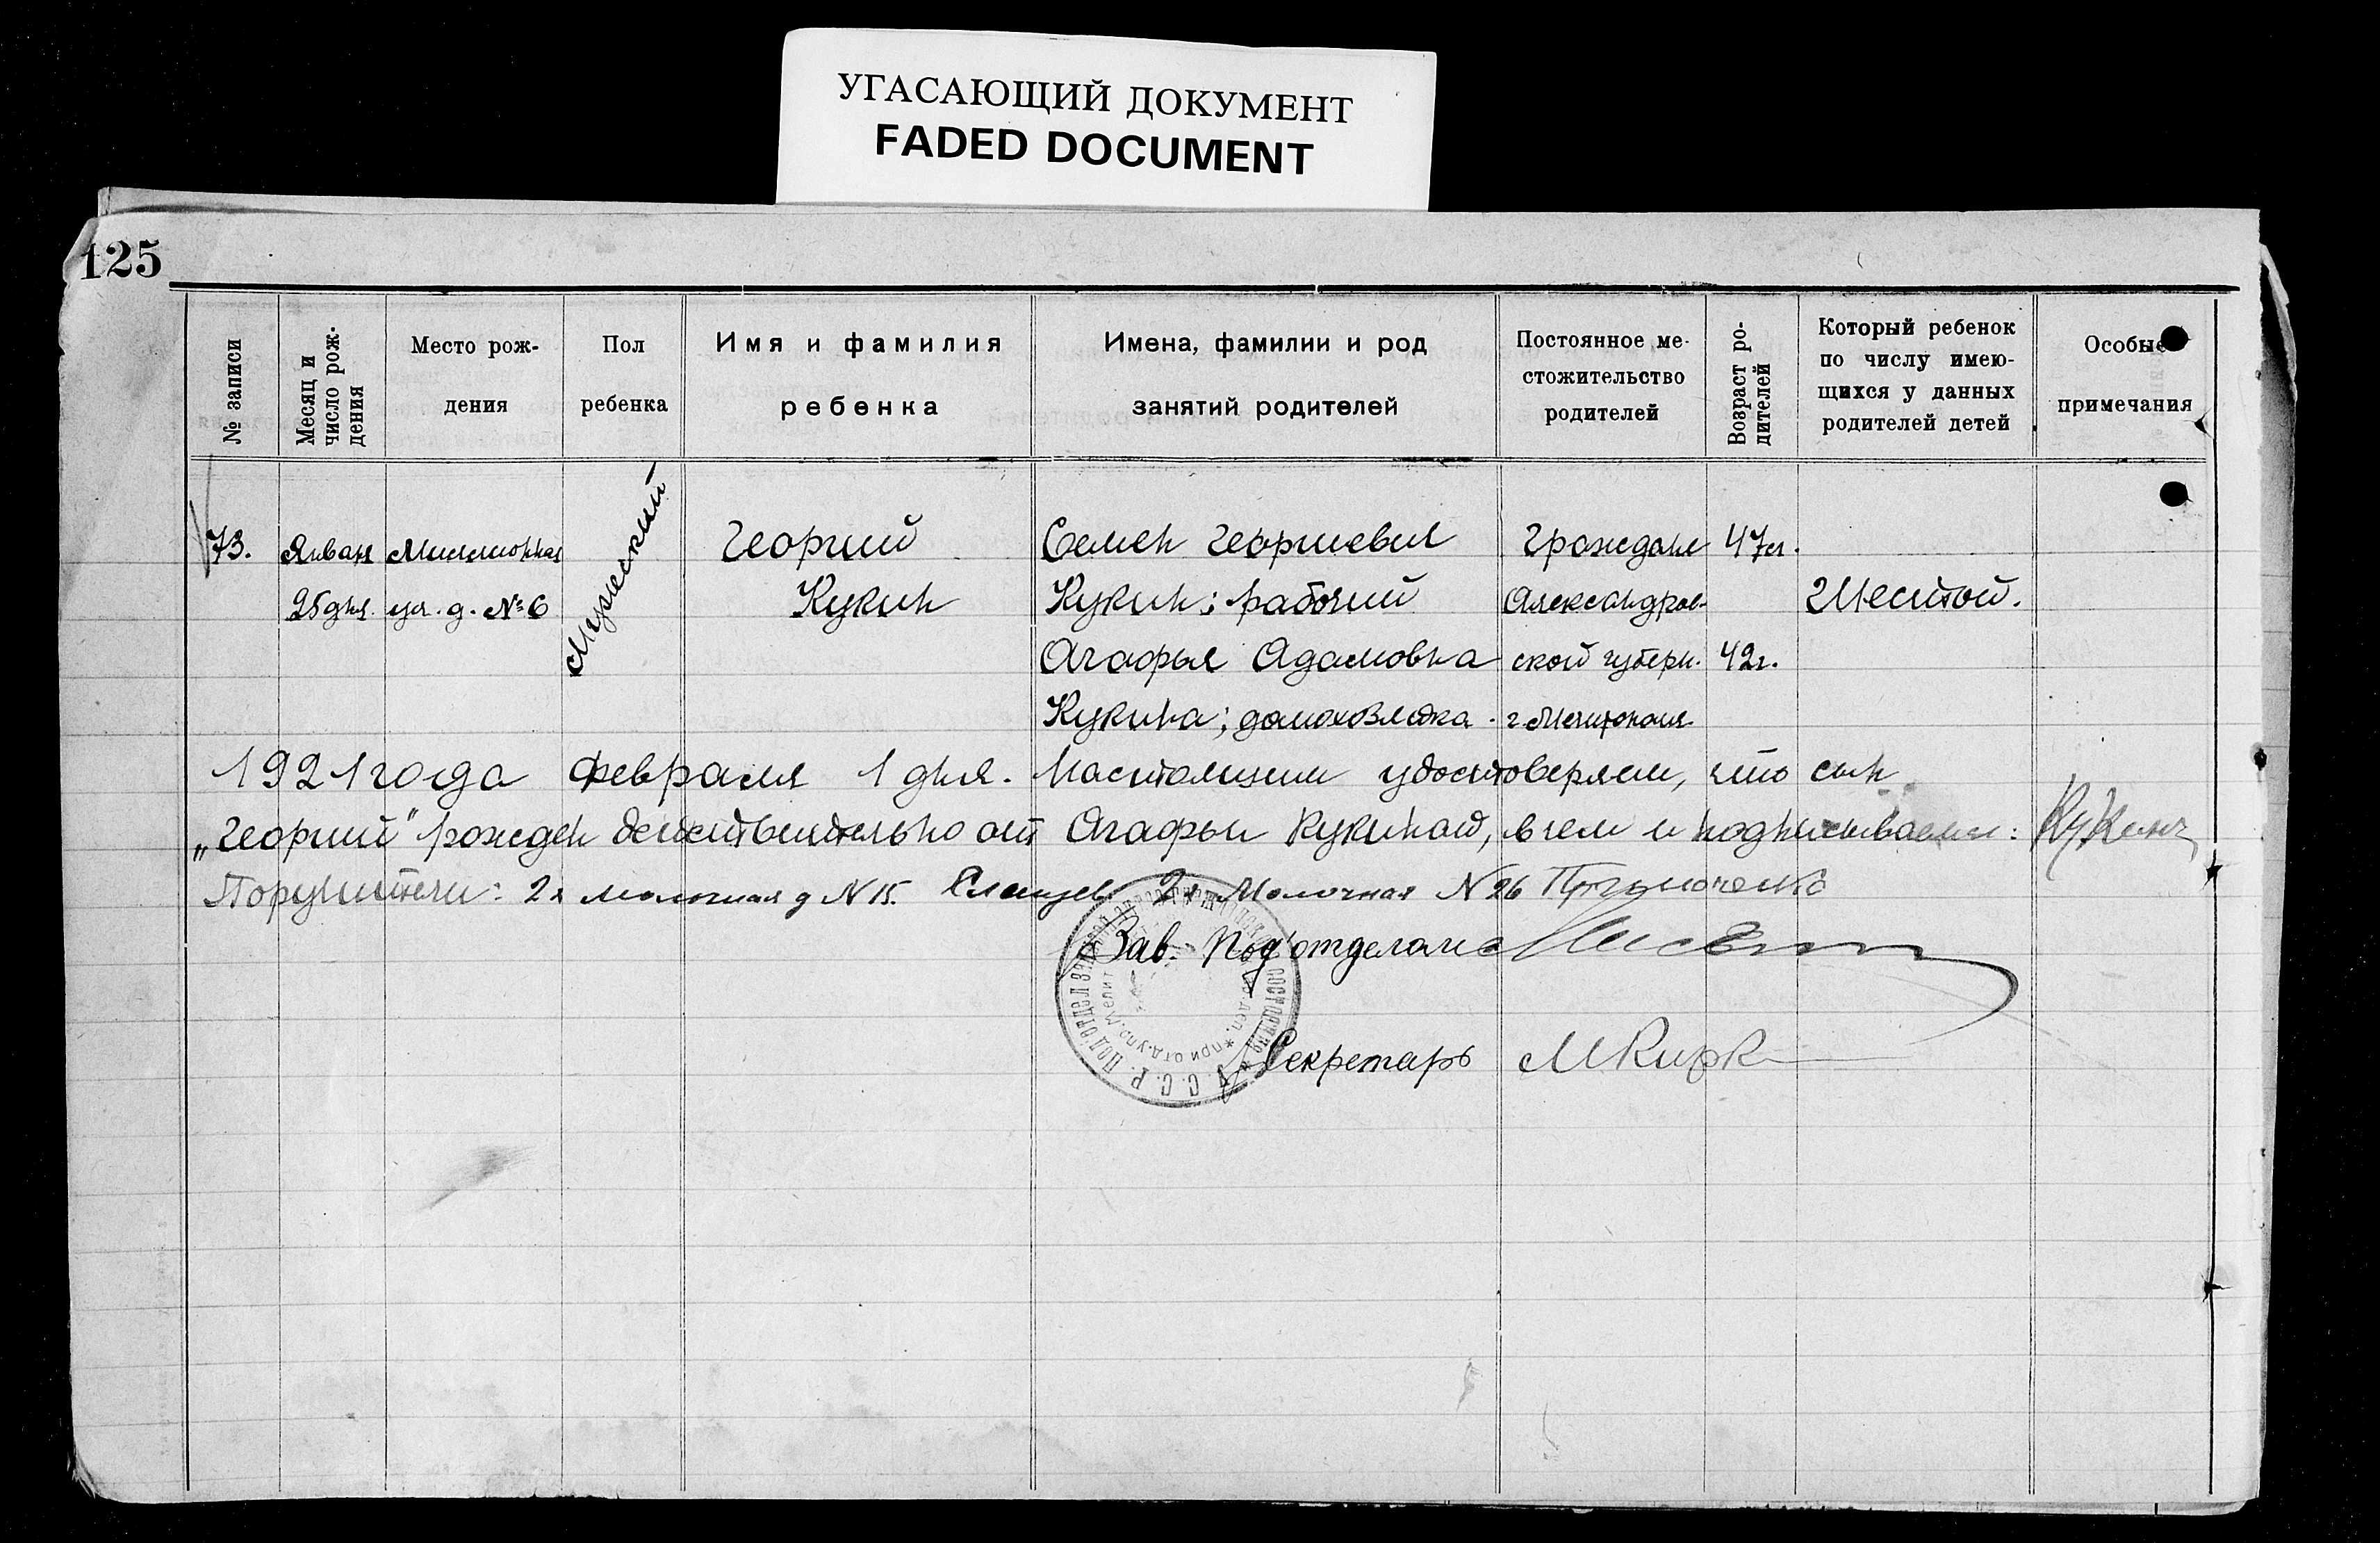 УГАСАЮЩИЙ ДОКУМЕНТ
FADED DOCUMENT
125
№ записи
Месяц и число рож-дения
Место рож-
дения
Пол
ребенка
Имя и фамилия
ребенка
Имена, фамилии и род
занятий родителей
Постоянное ме-
стожительство
родителей
Возраст ро-
дителей
Который ребенок
по числу имею-
щихся у данных
родителей детей
Особые
примечания
73. Январ Миллионная Мужеский Георгий Семен Георгиевич Граждане 47л.
25 дня. ул. д. №6 Кукин Кукин; рабочий Александров- Шестой.
Агафья Адамовна ской губерн. 42г.
Кукина; домохозяйка. г. Мелитополя
1921 года февраля 1 дня. Настоящим удостоверяем, что сын
„Георгий" рожден действительно от Агафьи Кукиной, в чем и подписываемся: Кукинъ
Поручители: 2я молочная д N 15. 2я Молочная N 26
Зав. Под'отделом
Секретарь МКирк
С. С. Р. Под'отдел записи
при отд. упр. Мелит